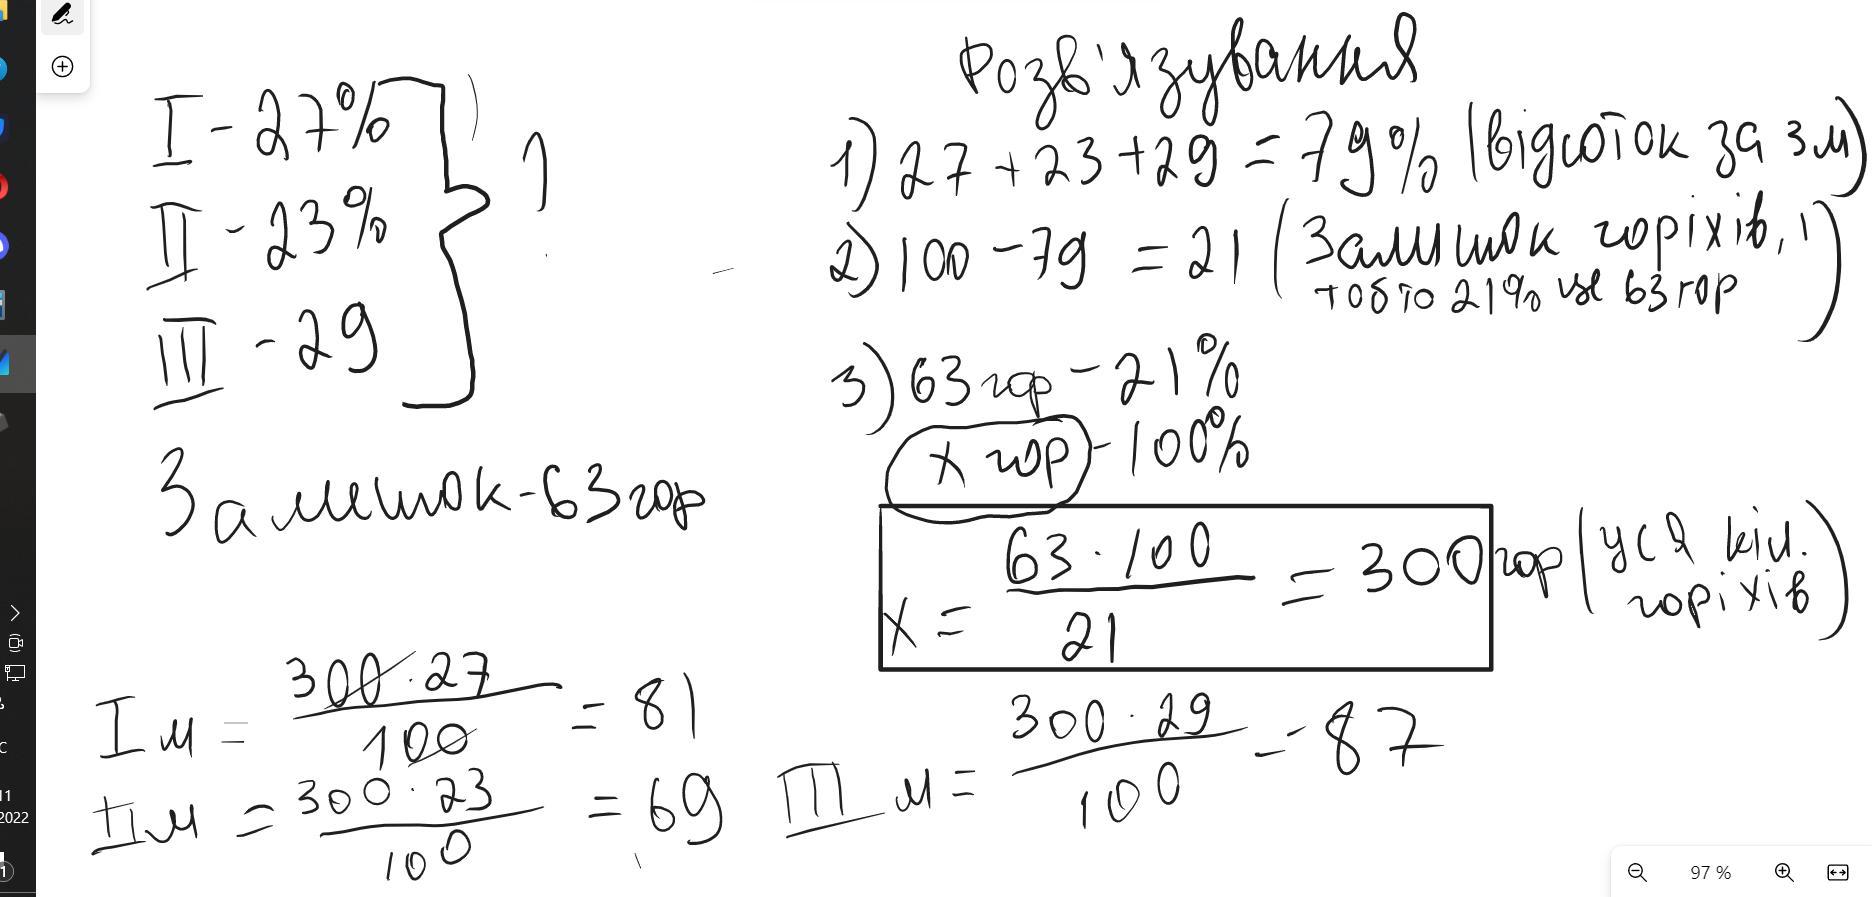 I - 27%
II - 23%
III - 29
1
Залишок - 63 гор
Розв'язування
1) 27 + 23 + 29 = 79% (відсоток за 3 м)
2) 100 - 79 = 21 (Залишок горіхів,
тобто 21% це 63 гор)
3) 63 гор - 21%
x гор - 100%
x = 63 · 100 / 21 = 300 гор (уся кіл. горіхів)
I м = 300 · 27 / 100 = 81
II м = 300 · 23 / 100 = 69
III м = 300 · 29 / 100 = 87
11
2022
97 %